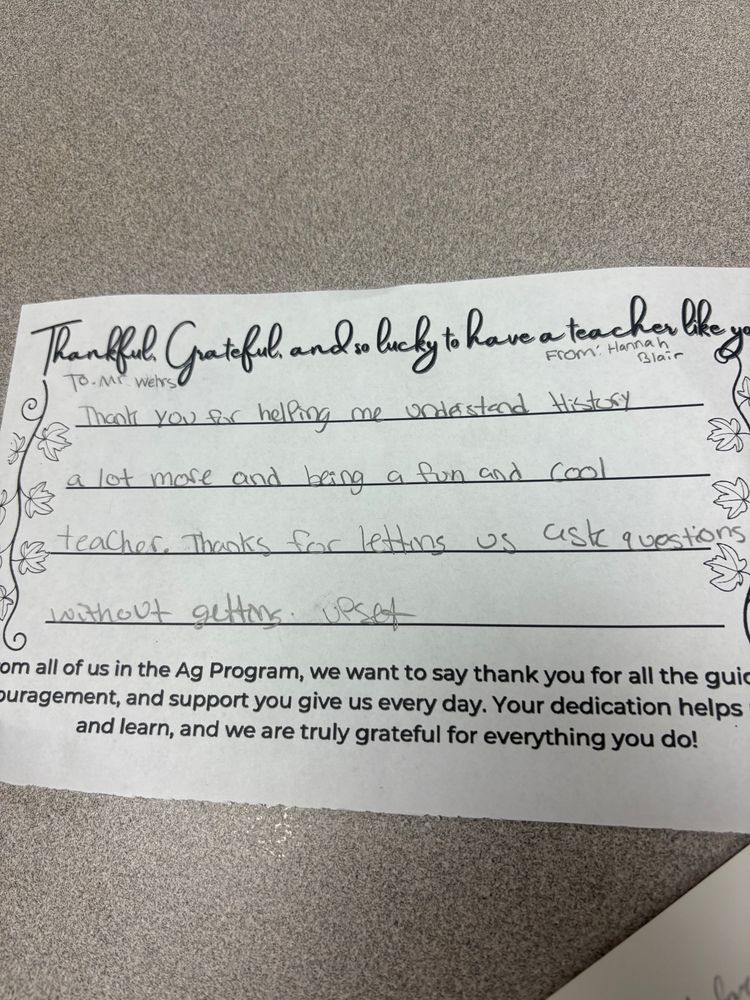 Thankful, Grateful, and so lucky to have a teacher like yo
From: Hannah
Blair
To. Mr. Wehrs
Thank you for helping me understand History
a lot more and being a fun and cool
teacher. Thanks for letting us ask questions
without getting. upset
om all of us in the Ag Program, we want to say thank you for all the guid
ouragement, and support you give us every day. Your dedication helps
and learn, and we are truly grateful for everything you do!